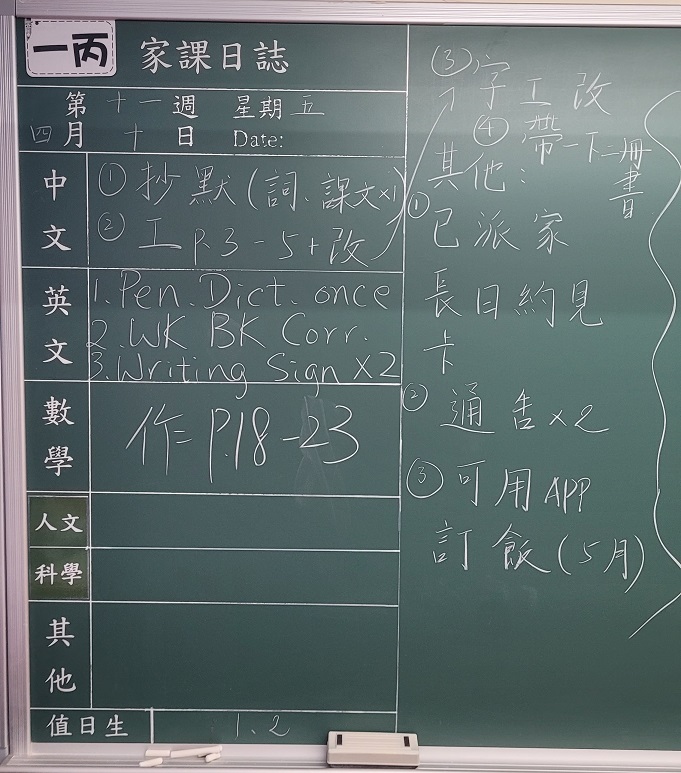 一丙 家課日誌
第十一週 星期五
四月十日 Date:
中文
① 抄默(詞、課文×1)
② 工P.3-5+改
③ 字工改
④ 帶一下二冊書
英文
1. Pen. Dict. once
2. WK BK Corr.
3. Writing Sign ×2
數學
作= P.18-23
人文
科學
其他
值日生 1、2
其他:
① 已派家
長日約見
卡
② 通告×2
③ 可用APP
訂飯(5月)